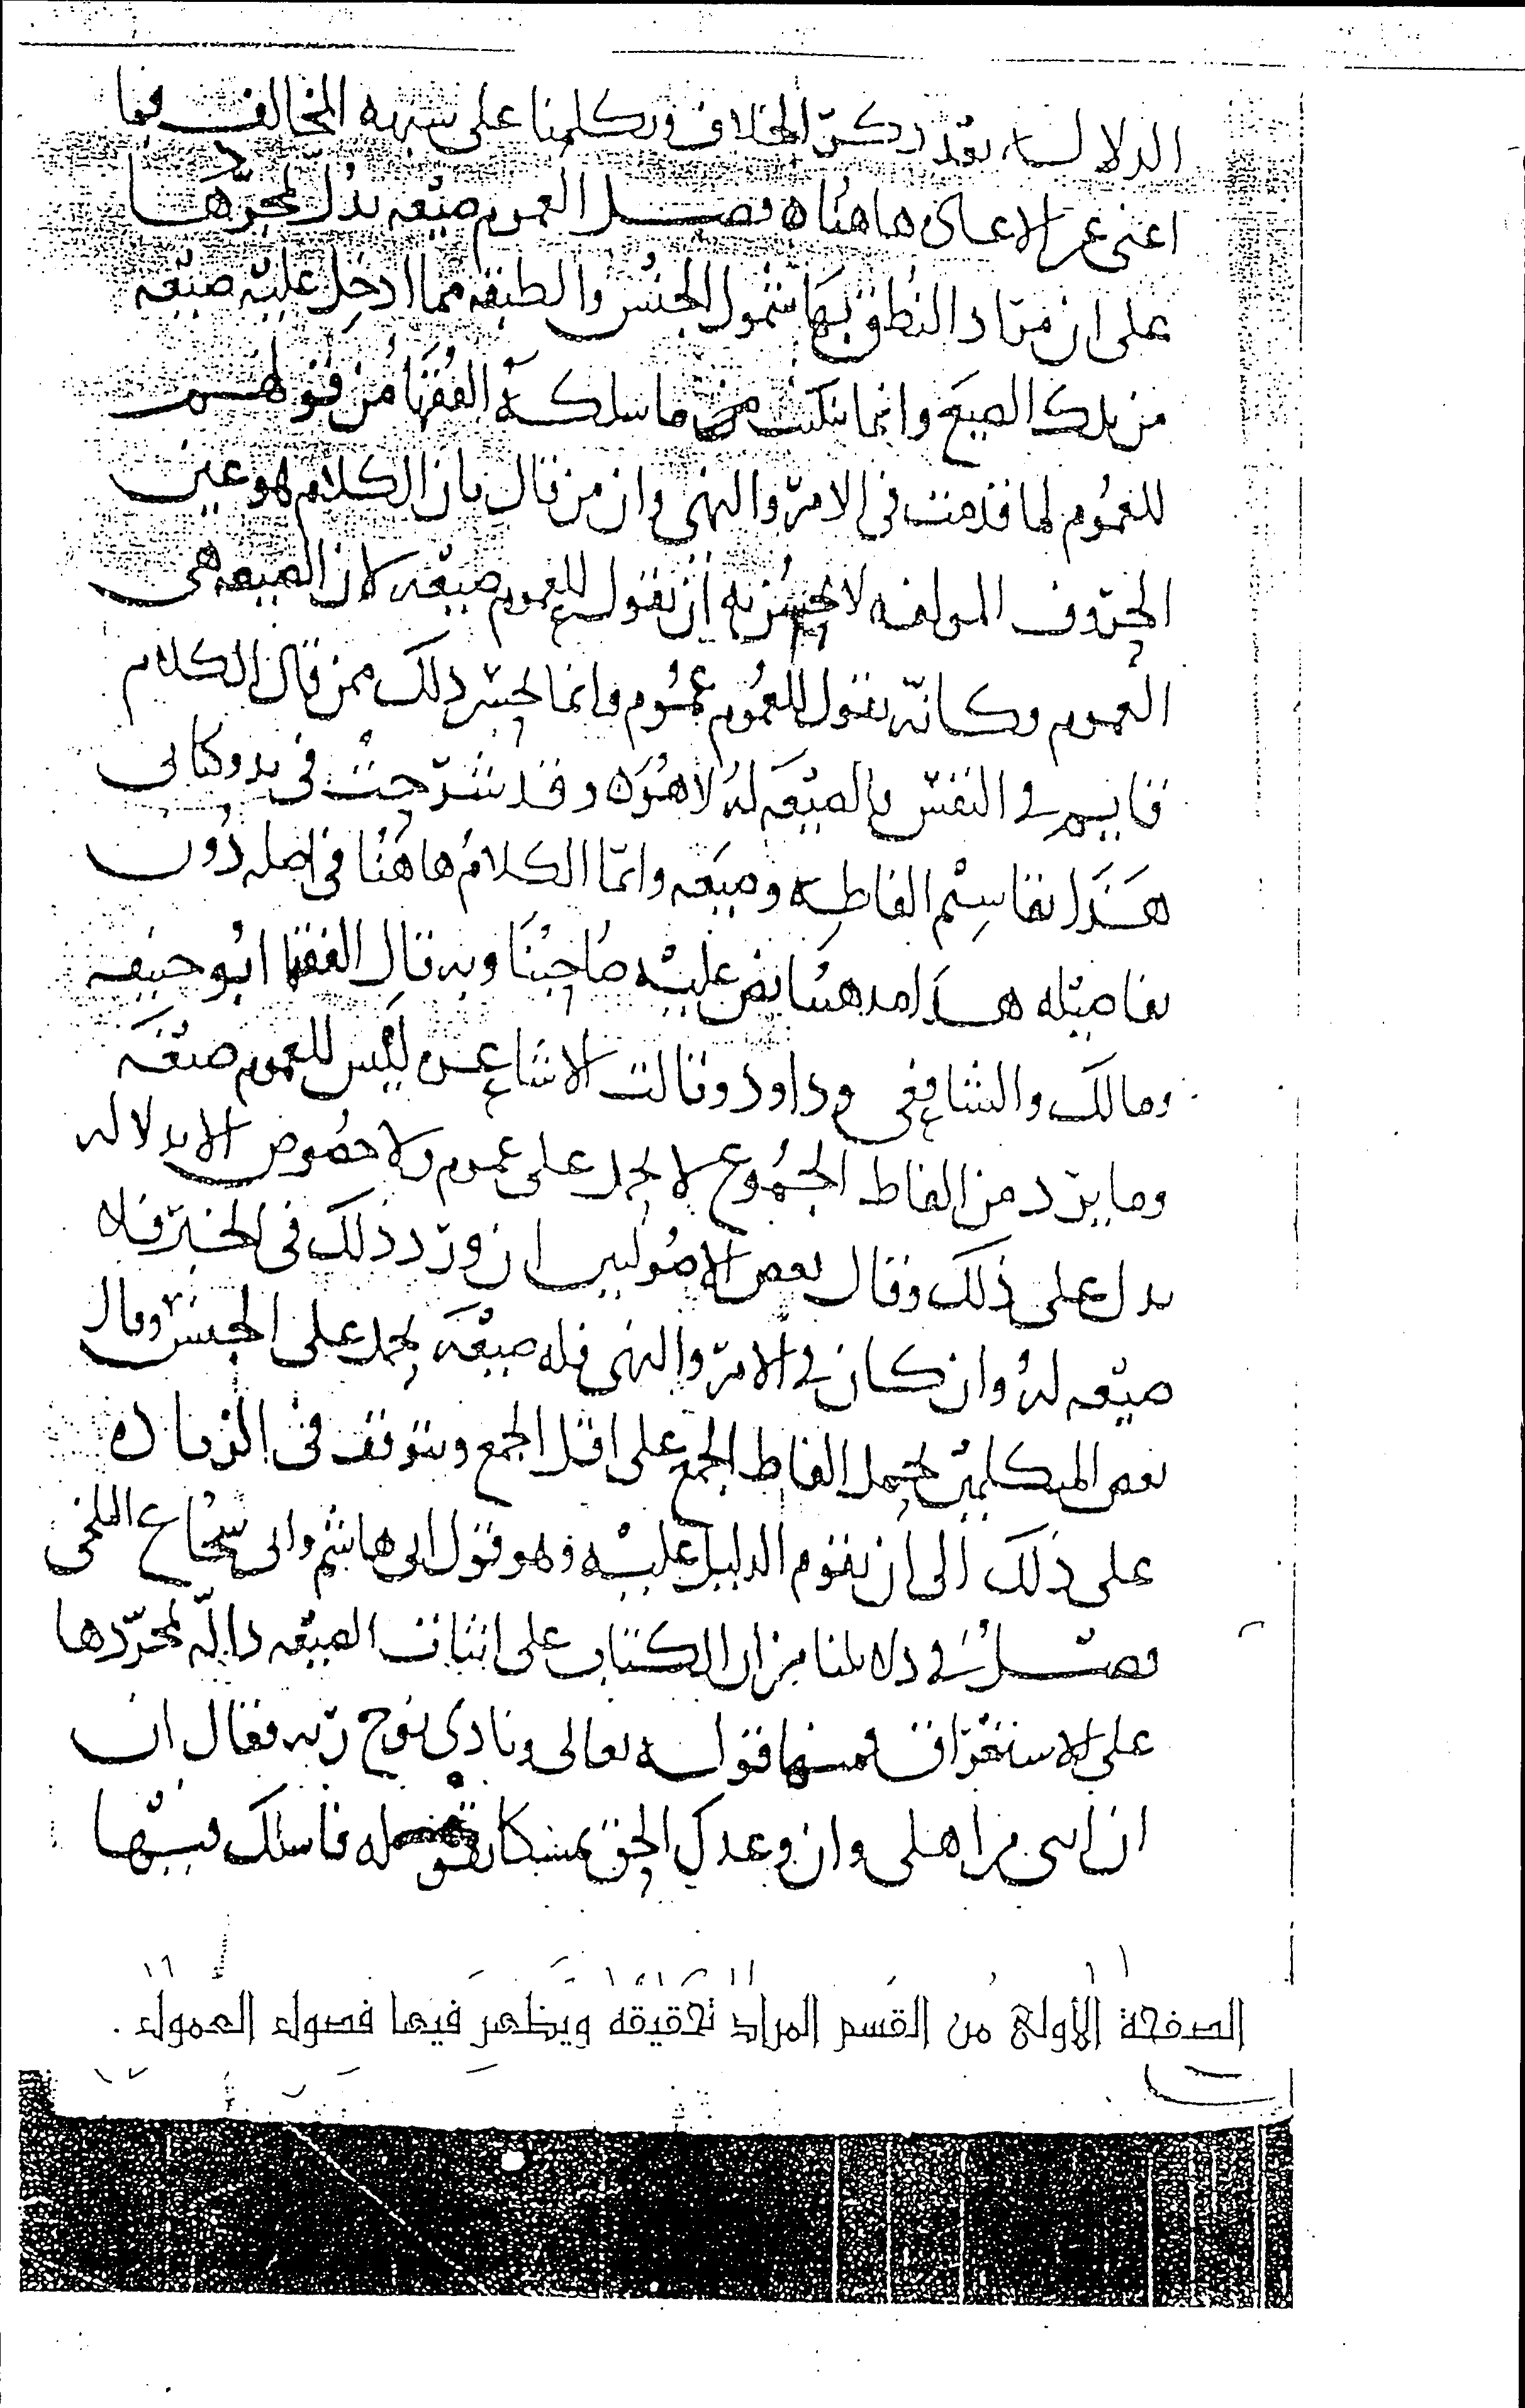 الدلالة بعد ذكر الخلاف وتكلمنا على شبهه المخالف فيها بما
اغنى عن الاعادة هاهناه فصل العموم صيغه تدل بمجردها
على ان مراد النطق بها شمول الجنس والطبقه مما ادخل عليه صيغه
من تلك الصيغ وانما تنكبت ما سلكه الفقها من قولهم
للعموم لما قدمت في الامر والنهي وان من قال بان الكلام هو عين
الحروف المولفه لا يحسن به ان يقول للعموم صيغه لان الصيغه هي
العموم وكانه يقول للعموم عموم وانما يحسن ذلك ممن قال الكلام
قايم في النفس والصيغه له لا هوه وقد شرحت في بدو كتابي
هذا تقاسيم الفاظه وصيغه وانما الكلام هاهنا في اصله دون
تفاصيله هذا مذهبنا نص عليه صاحبنا وبه قال الفقها ابو حنيفه
ومالك والشافعي وداود وقالت الاشاعره ليس للعموم صيغه
وما يرد من الفاظ الجموع لا يحمل على عموم ولا خصوص الا بدلاله
تدل على ذلك وقال بعض الاصوليين ان ورد ذلك في الخبر فلا
صيغه له وان كان في الامر والنهي فله صيغه تحمل على الجنس وقال
بعض المتكلمين يحمل الفاظ الجمع على اقل الجمع ويتوقف في الزياده
على ذلك الى ان يقوم الدليل عليه وهو قول ابي هاشم وابي شجاع البلخي
فصل في دلايلنا من اي الكتاب على اثبات الصيغه داله بمجردها
على الاستغراق فمنها قوله تعالى ونادى نوح ربه فقال ان
ان ابني من اهلي وان وعدك الحق تمسكا بقوله فاسلك فيها
الصفحة الأولى من القسم المراد تحقيقه ويظهر فيها فصول العموم .